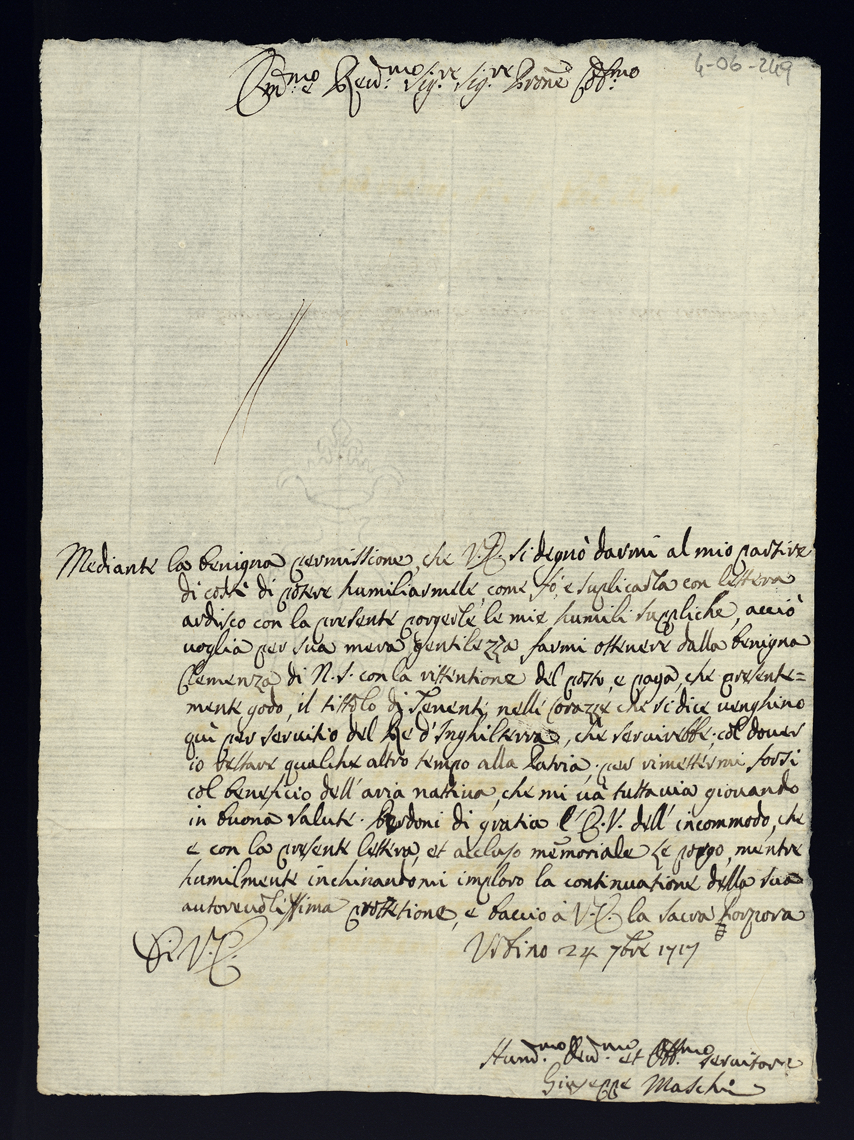 4-06-249
Em.mo e Rev.mo Sig.re Sig.re Prone Col.mo
Mediante la benigna permissione, che V.E. si degnò darmi al mio partire
di costì di potere humiliarmele, come fò, e suplicarla con lettera
ardisco con la presente porgerle le mie humili suppliche, acciò
voglia per sua mera gentilezza farmi ottenere dalla benigna
Clemenza di N.S. con la rittentione del posto, e paga, che presente=
mente godo, il tittolo di Tenente nelle Corazze che si dice venghino
quì per servitio del Re d'Inghilterra, che servirebbe col dover
io restare qualche altro tempo alla Patria per rimettermi forsi
col beneficio dell'aria nattiva, che mi và tuttavia giovando
in buona salute. Perdoni di gratia l'E.V. dell'incommodo, che
e con la presente lettera, et accluso memoriale Le porgo, mentre
humilmente inchinandomi imploro la continuatione della sua
autorevolissima prottetione, e baccio à V.E. la sacra Porpora
Di V.E. Urbino 24 7bre 1717
Hum.mo Dev.mo et Obb.mo servitore
Giuseppe Maschi